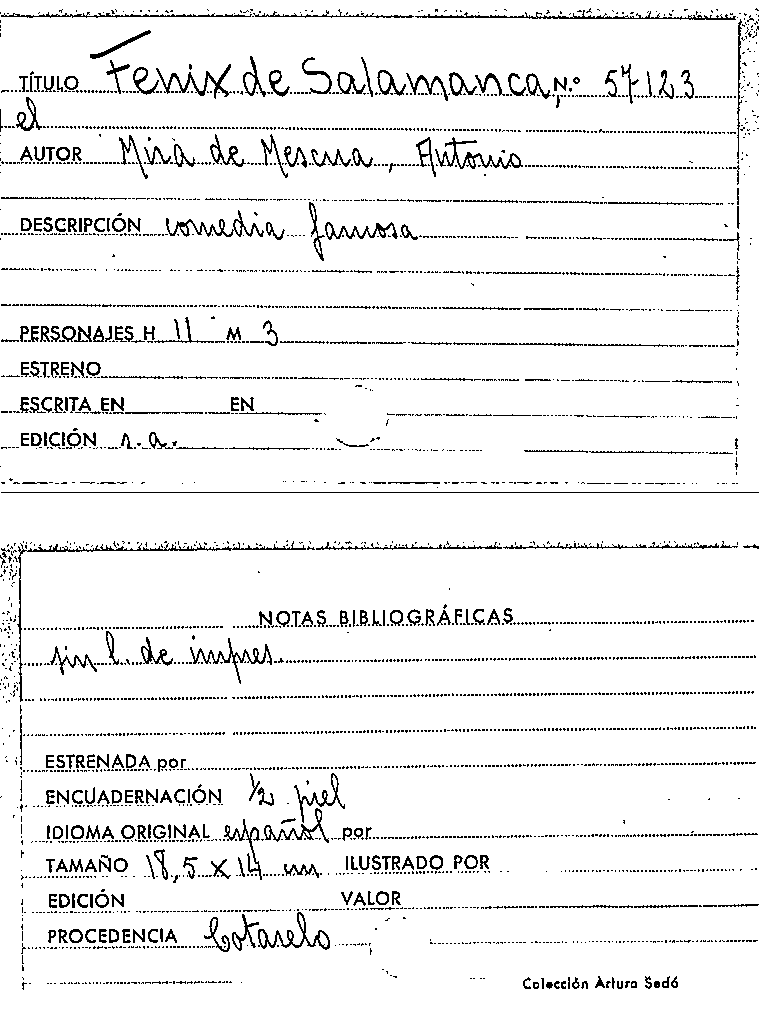 TÍTULO Fenix de Salamanca, N.º 57-123
el
AUTOR Mira de Mescua, Antonio
DESCRIPCIÓN comedia famosa
PERSONAJES H 11 M 3
ESTRENO
ESCRITA EN EN
EDICIÓN s.a.
NOTAS BIBLIOGRÁFICAS
sin l. de impres.
ESTRENADA por
ENCUADERNACIÓN ½ piel
IDIOMA ORIGINAL español por
TAMAÑO 18,5 x 14 cm ILUSTRADO POR
EDICIÓN VALOR
PROCEDENCIA Cotarelo
Colección Arturo Sedó